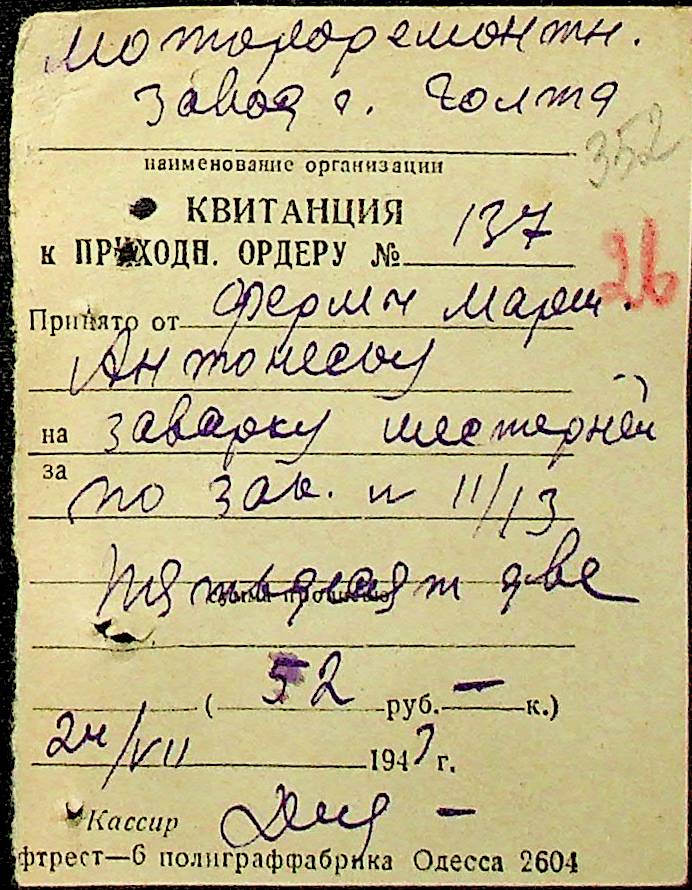 Мотороремонтн.
завод г. Голта
352
наименование организации
КВИТАНЦИЯ
к ПРИХОДН. ОРДЕРУ № 137
26
Принято от Фермы Марш.
Антонеску
на заварку шестерней
за
по зак. № 11/13
Пятьдесят две
сумма прописью
( 52 руб. — к.)
24/VII 194 г.
Кассир
фтрест—6 полиграффабрика Одесса 2604